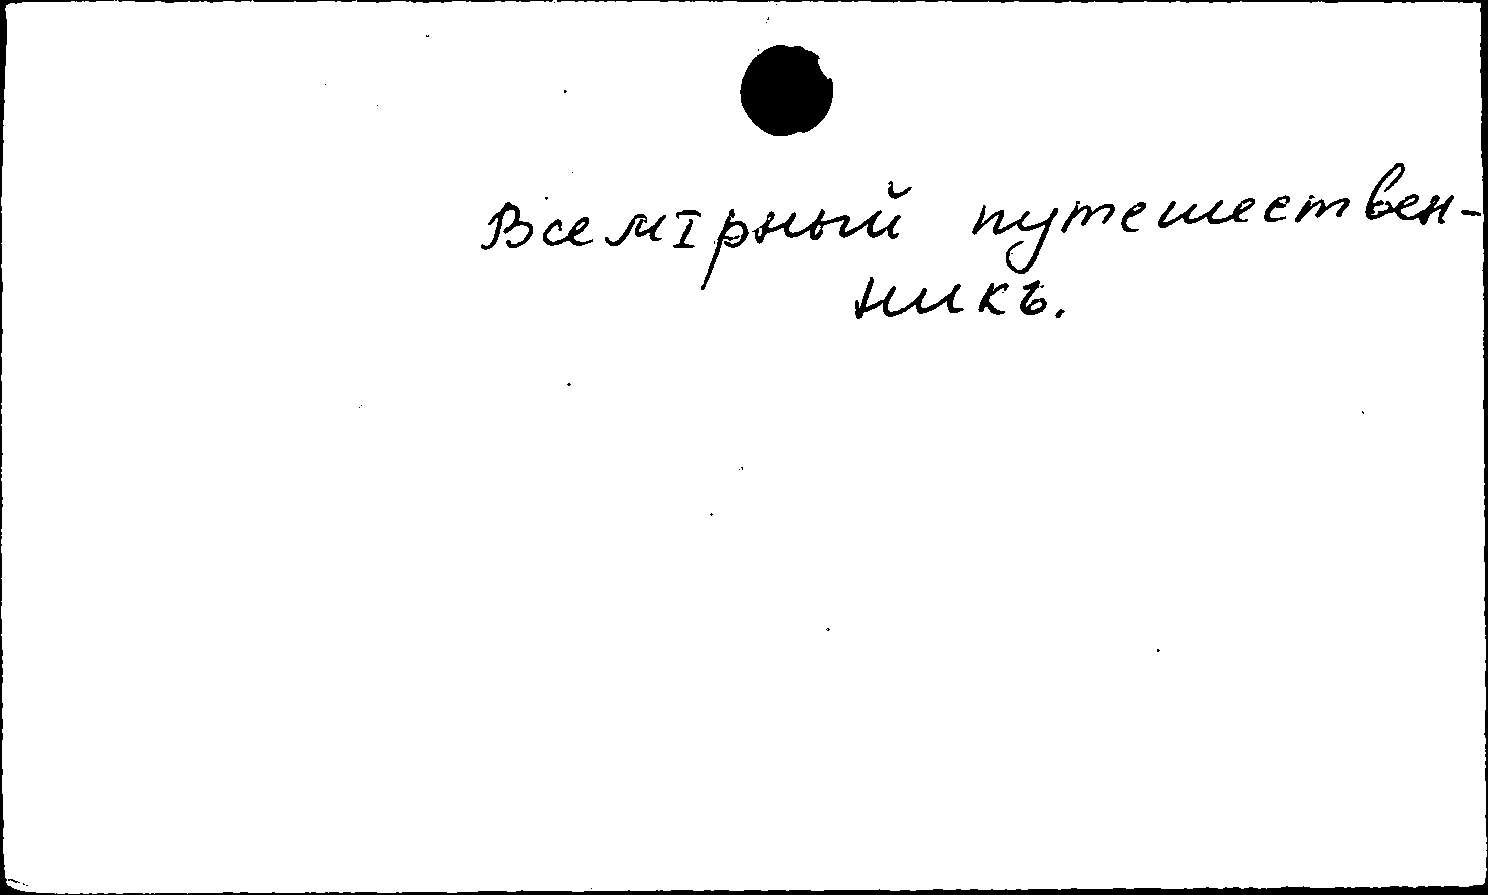 Всемiрный путешествен-
никъ.